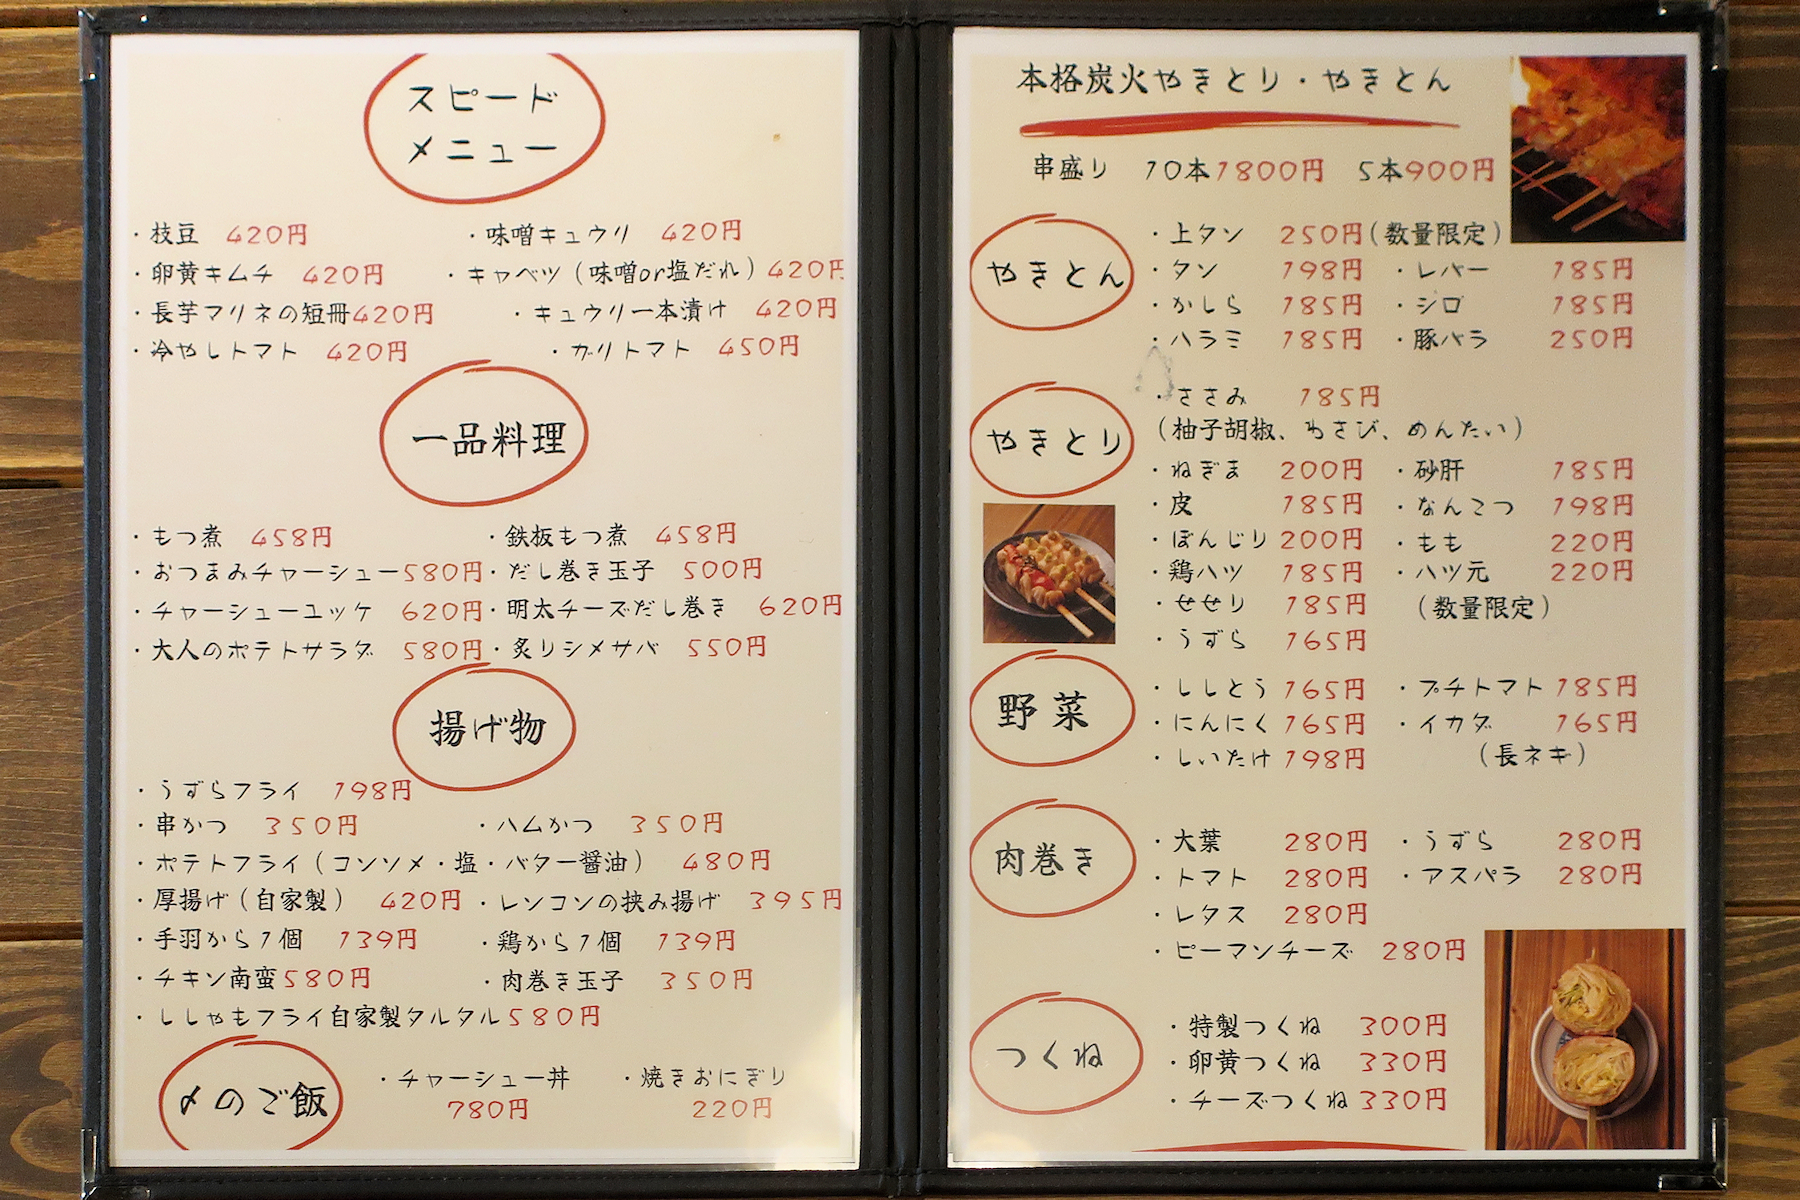 スピード
メニュー
・枝豆 420円 ・味噌キュウリ 420円
・卵黄キムチ 420円 ・キャベツ(味噌or塩だれ)420円
・長芋マリネの短冊420円 ・キュウリ一本漬け 420円
・冷やしトマト 420円 ・ガリトマト 450円
一品料理
・もつ煮 458円 ・鉄板もつ煮 458円
・おつまみチャーシュー580円 ・だし巻き玉子 500円
・チャーシューユッケ 620円 ・明太チーズだし巻き 620円
・大人のポテトサラダ 580円 ・炙りシメサバ 550円
揚げ物
・うずらフライ 198円
・串かつ 350円 ・ハムかつ 350円
・ポテトフライ(コンソメ・塩・バター醤油) 480円
・厚揚げ(自家製) 420円 ・レンコンの挟み揚げ 395円
・手羽から1個 139円 ・鶏から1個 139円
・チキン南蛮580円 ・肉巻き玉子 350円
・ししゃもフライ自家製タルタル580円
〆のご飯
・チャーシュー丼 ・焼きおにぎり
780円 220円
本格炭火やきとり・やきとん
串盛り 10本1800円 5本900円
やきとん
・上タン 250円(数量限定)
・タン 198円 ・レバー 185円
・かしら 185円 ・シロ 185円
・ハラミ 185円 ・豚バラ 250円
やきとり
・ささみ 185円
(柚子胡椒、わさび、めんたい)
・ねぎま 200円 ・砂肝 185円
・皮 185円 ・なんこつ 198円
・ぼんじり 200円 ・もも 220円
・鶏ハツ 185円 ・ハツ元 220円
・せせり 185円 (数量限定)
・うずら 165円
野菜
・ししとう 165円 ・プチトマト 185円
・にんにく 165円 ・イカダ 165円
・しいたけ 198円 (長ネギ)
肉巻き
・大葉 280円 ・うずら 280円
・トマト 280円 ・アスパラ 280円
・レタス 280円
・ピーマンチーズ 280円
つくね
・特製つくね 300円
・卵黄つくね 330円
・チーズつくね 330円